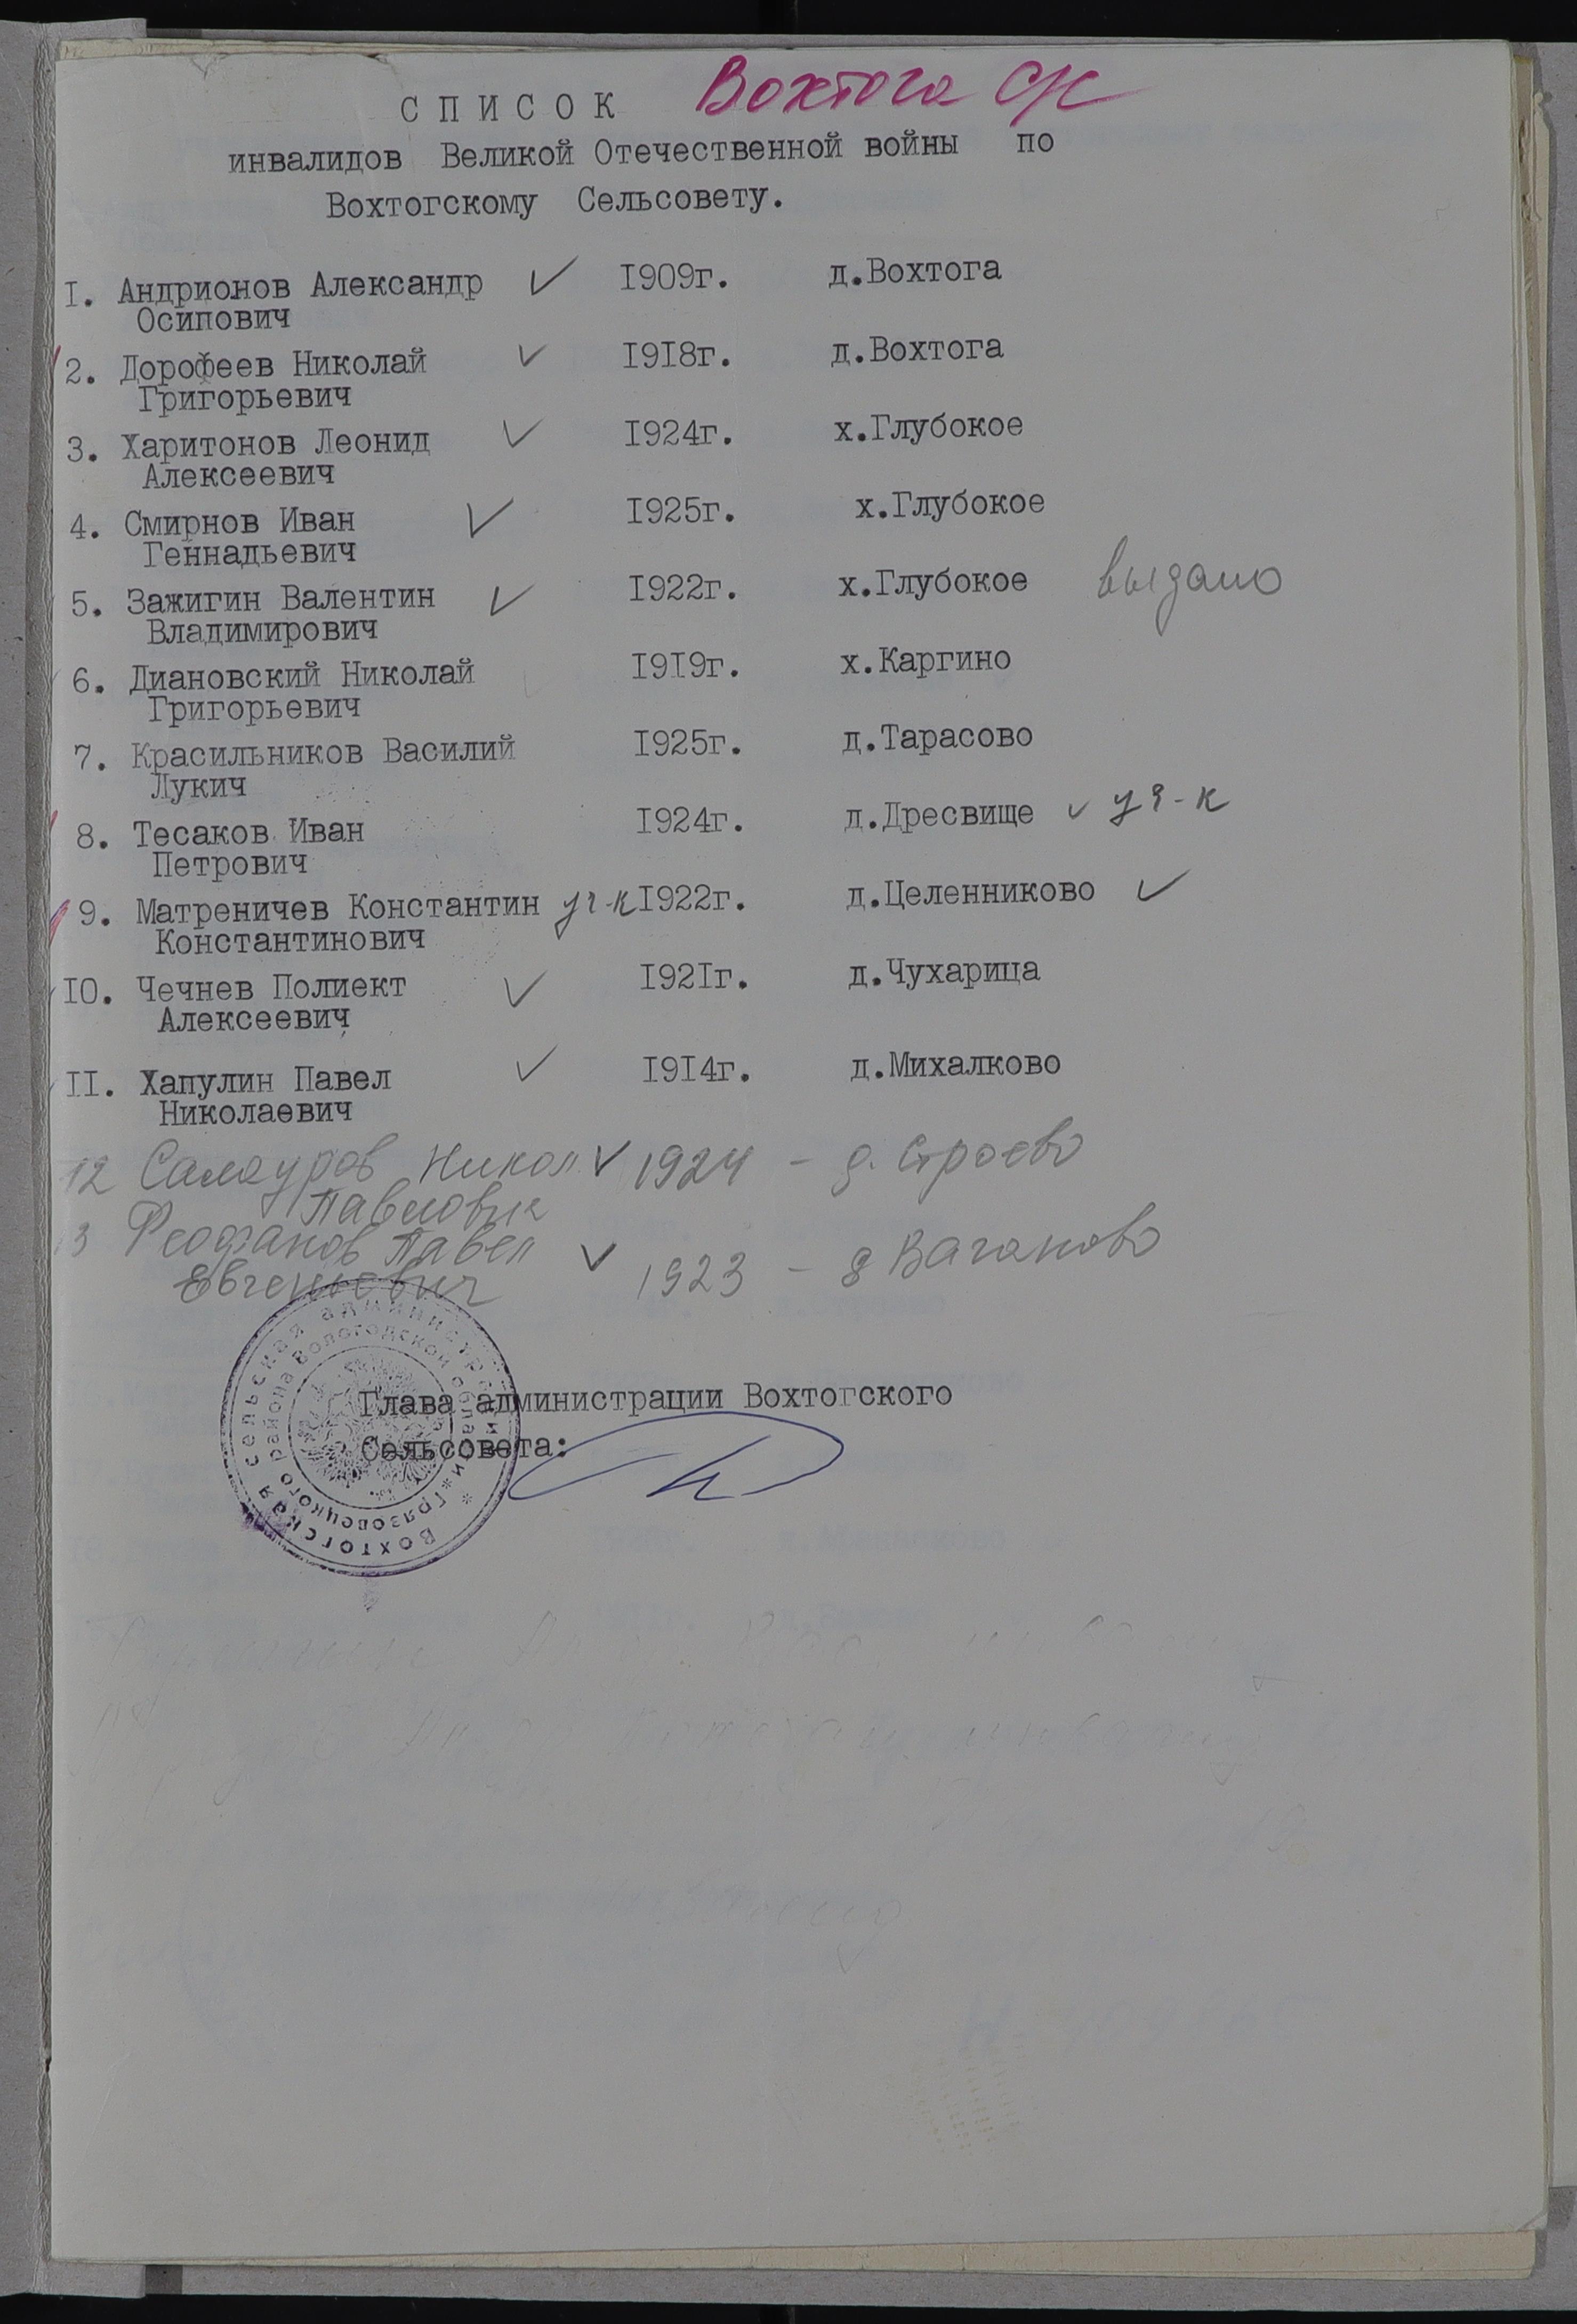 СПИСОК Вохтога С/С
инвалидов Великой Отечественной войны по
Вохтогскому Сельсовету.
I. Андрионов Александр ✓ I909г. д.Вохтога
Осипович
2. Дорофеев Николай ✓ I9I8г. д.Вохтога
Григорьевич
3. Харитонов Леонид ✓ I924г. х.Глубокое
Алексеевич
4. Смирнов Иван ✓ I925г. х.Глубокое
Геннадьевич
5. Зажигин Валентин ✓ I922г. х.Глубокое выдано
Владимирович
6. Диановский Николай I9I9г. х.Каргино
Григорьевич
7. Красильников Василий I925г. д.Тарасово
Лукич
8. Тесаков Иван I924г. д.Дресвище ✓ уч-к
Петрович
9. Матреничев Константин уч-к I922г. д.Целенниково ✓
Константинович
IO. Чечнев Полиект ✓ I92Iг. д.Чухарица
Алексеевич
II. Хапулин Павел ✓ I9I4г. д.Михалково
Николаевич
12 Самауров Никол ✓ 1924 - д. Строево
Павлович
13 Феофанов Павел ✓ 1923 - д Ваганово
Евгеньевич
Вохтогская сельская администрация
* Грязовецкого района Вологодской области *
Глава администрации Вохтогского
Сельсовета: